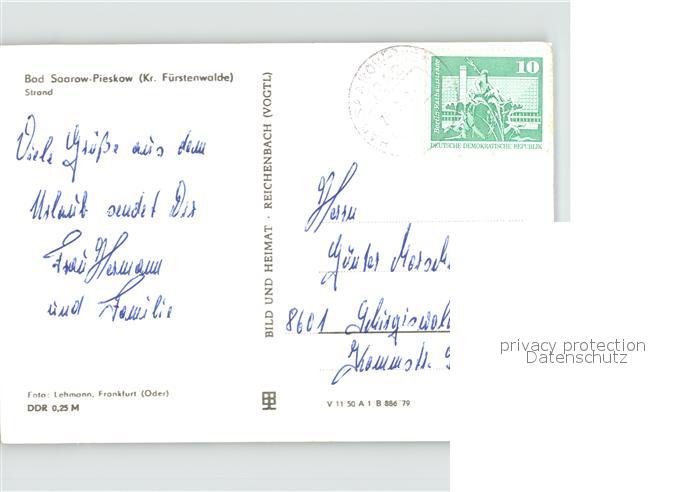 Bad Saarow-Pieskow (Kr. Fürstenwalde)
Strand
Viele Grüße aus dem
Urlaub sendet Dir
Frau Hermann
und Familie
Foto: Lehmann, Frankfurt (Oder)
DDR 0,25 M
BILD UND HEIMAT · REICHENBACH (VOGTL)
V 11 50 A 1 B 886 79
10
Berlin, Rathausstraße
DEUTSCHE DEMOKRATISCHE REPUBLIK
Herrn
Günter
8601
privacy protection
Datenschutz